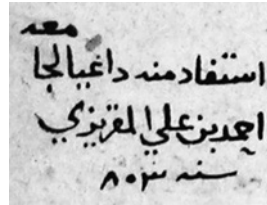 استفاد منه داعيا لجامعه
احمد بن علي المقريزي
سنه ٨٠٣